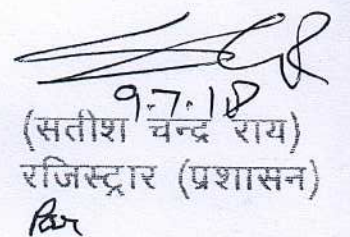 9.7.18
(सतीश चन्द्र राय)
रजिस्ट्रार (प्रशासन)